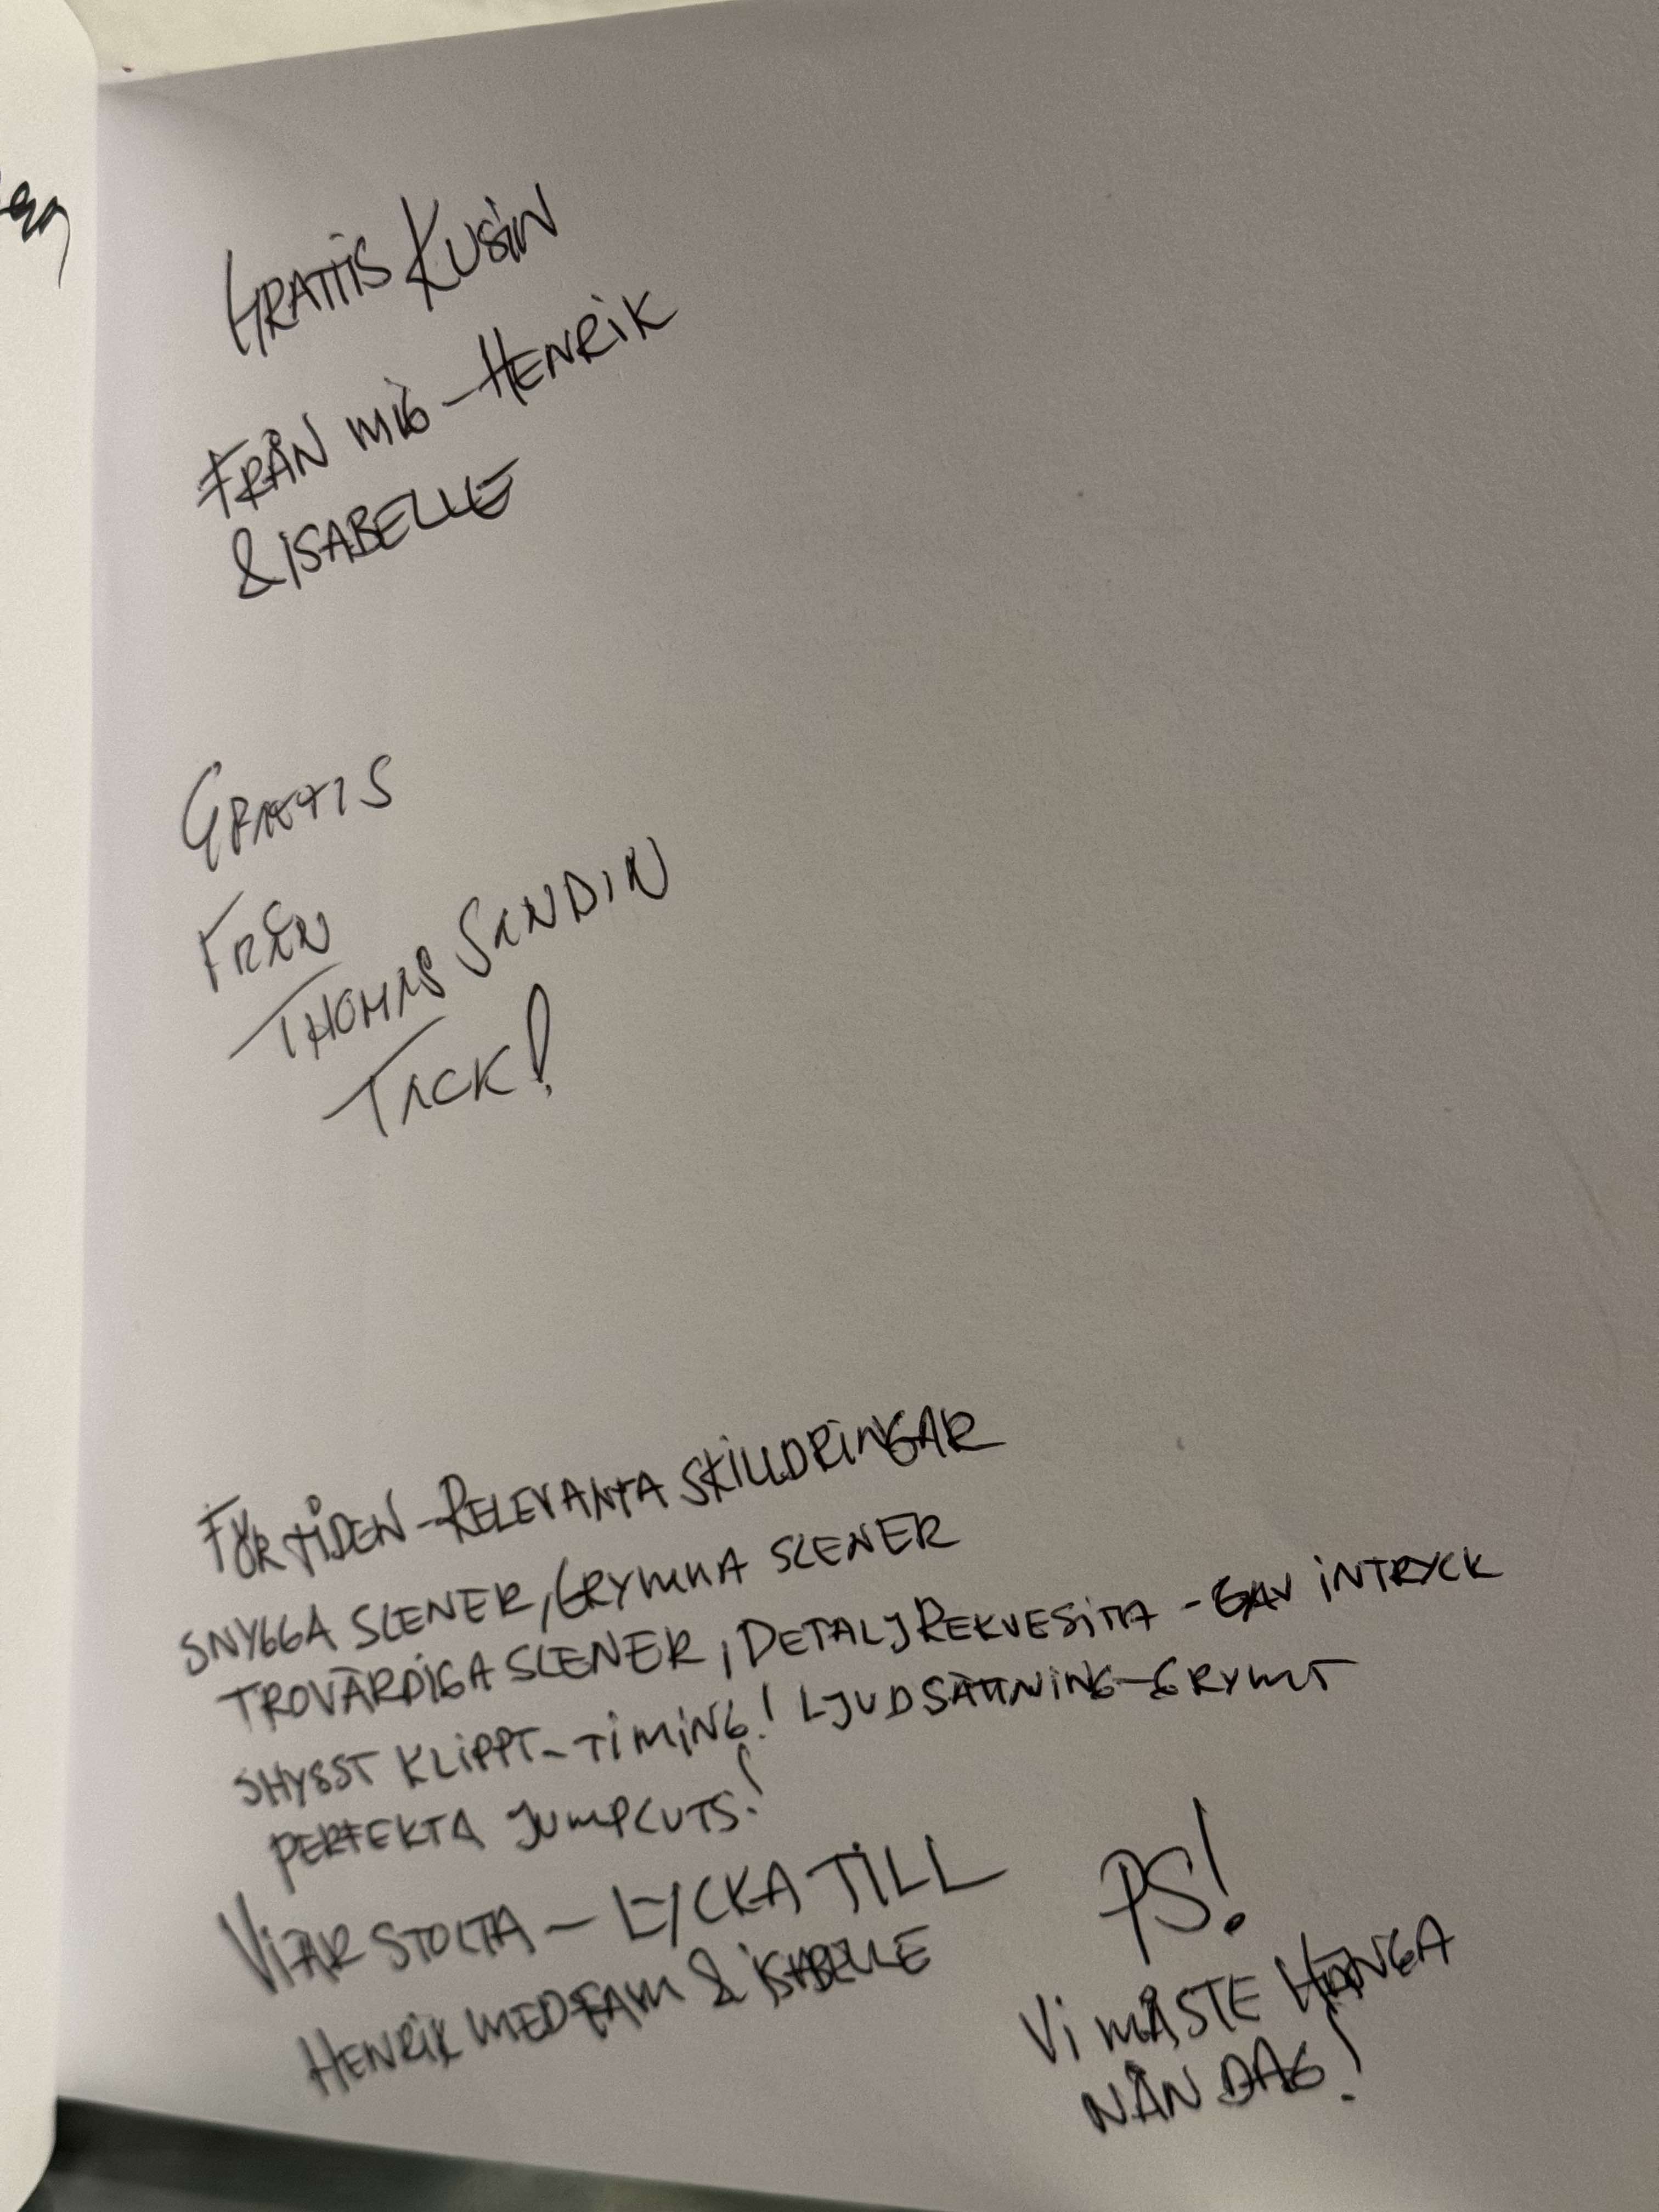 GRATTIS KUSIN
FRÅN MIG - HENRIK
& ISABELLE
GRATTIS
FRÅN
THOMAS SANDIN
TACK!
FÖR TIDEN - RELEVANTA SKILLDRINGAR
SNYGGA SCENER, GRYMMA SCENER
TROVÄRDIGA SCENER, DETALJREKVESITA - GAV INTRYCK
SHYSST KLIPPT - TIMING! LJUDSÄTTNING - GRYMT
PERFEKTA JUMPCUTS!
VI ÄR STOLTA - LYCKA TILL
HENRIK MED FAM & ISABELLE
PS!
VI MÅSTE HÄNGA
NÅN DAG!